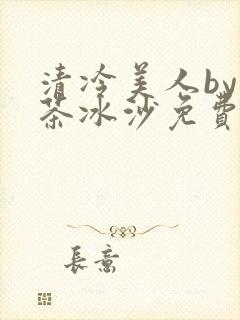 清冷美人by
茶冰沙免費
長意